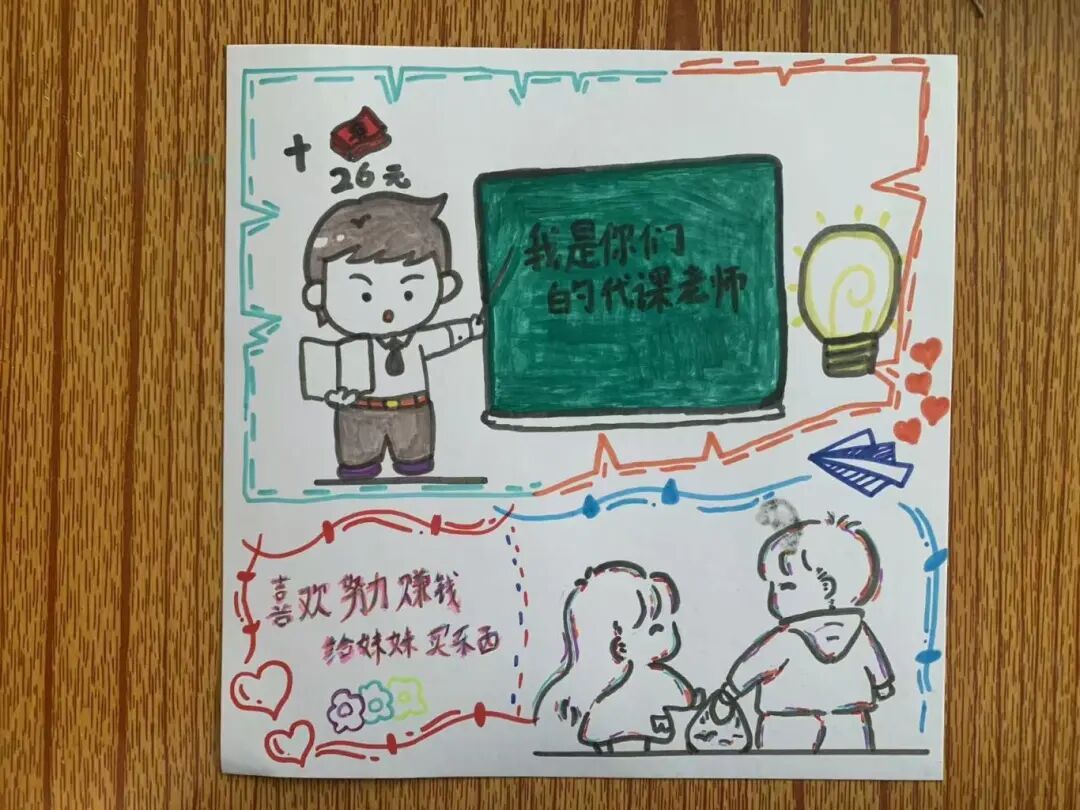 +
26元
我是你们
的代课老师
喜欢努力赚钱
给妹妹买东西